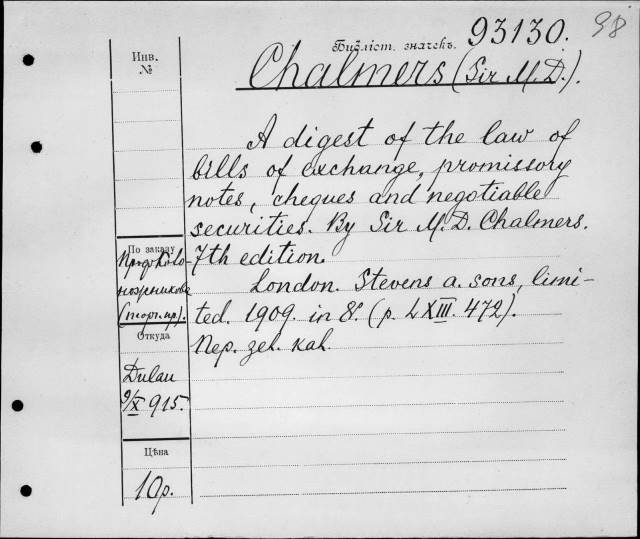 98
Библіот. значекъ. 93130.
Инв.
№
Chalmers (Sir M. D.).
A digest of the law of
bills of exchange, promissory
notes, cheques and negotiable
securities. By Sir M. D. Chalmers.
7th edition.
London. Stevens a. sons, limi-
ted. 1909. in 8º. (p. LXIII. 472).
Пер. зел. кал.
По заказу
(торг. пр.).
Откуда
Dulau
9/X 915.
Цѣна
10р.